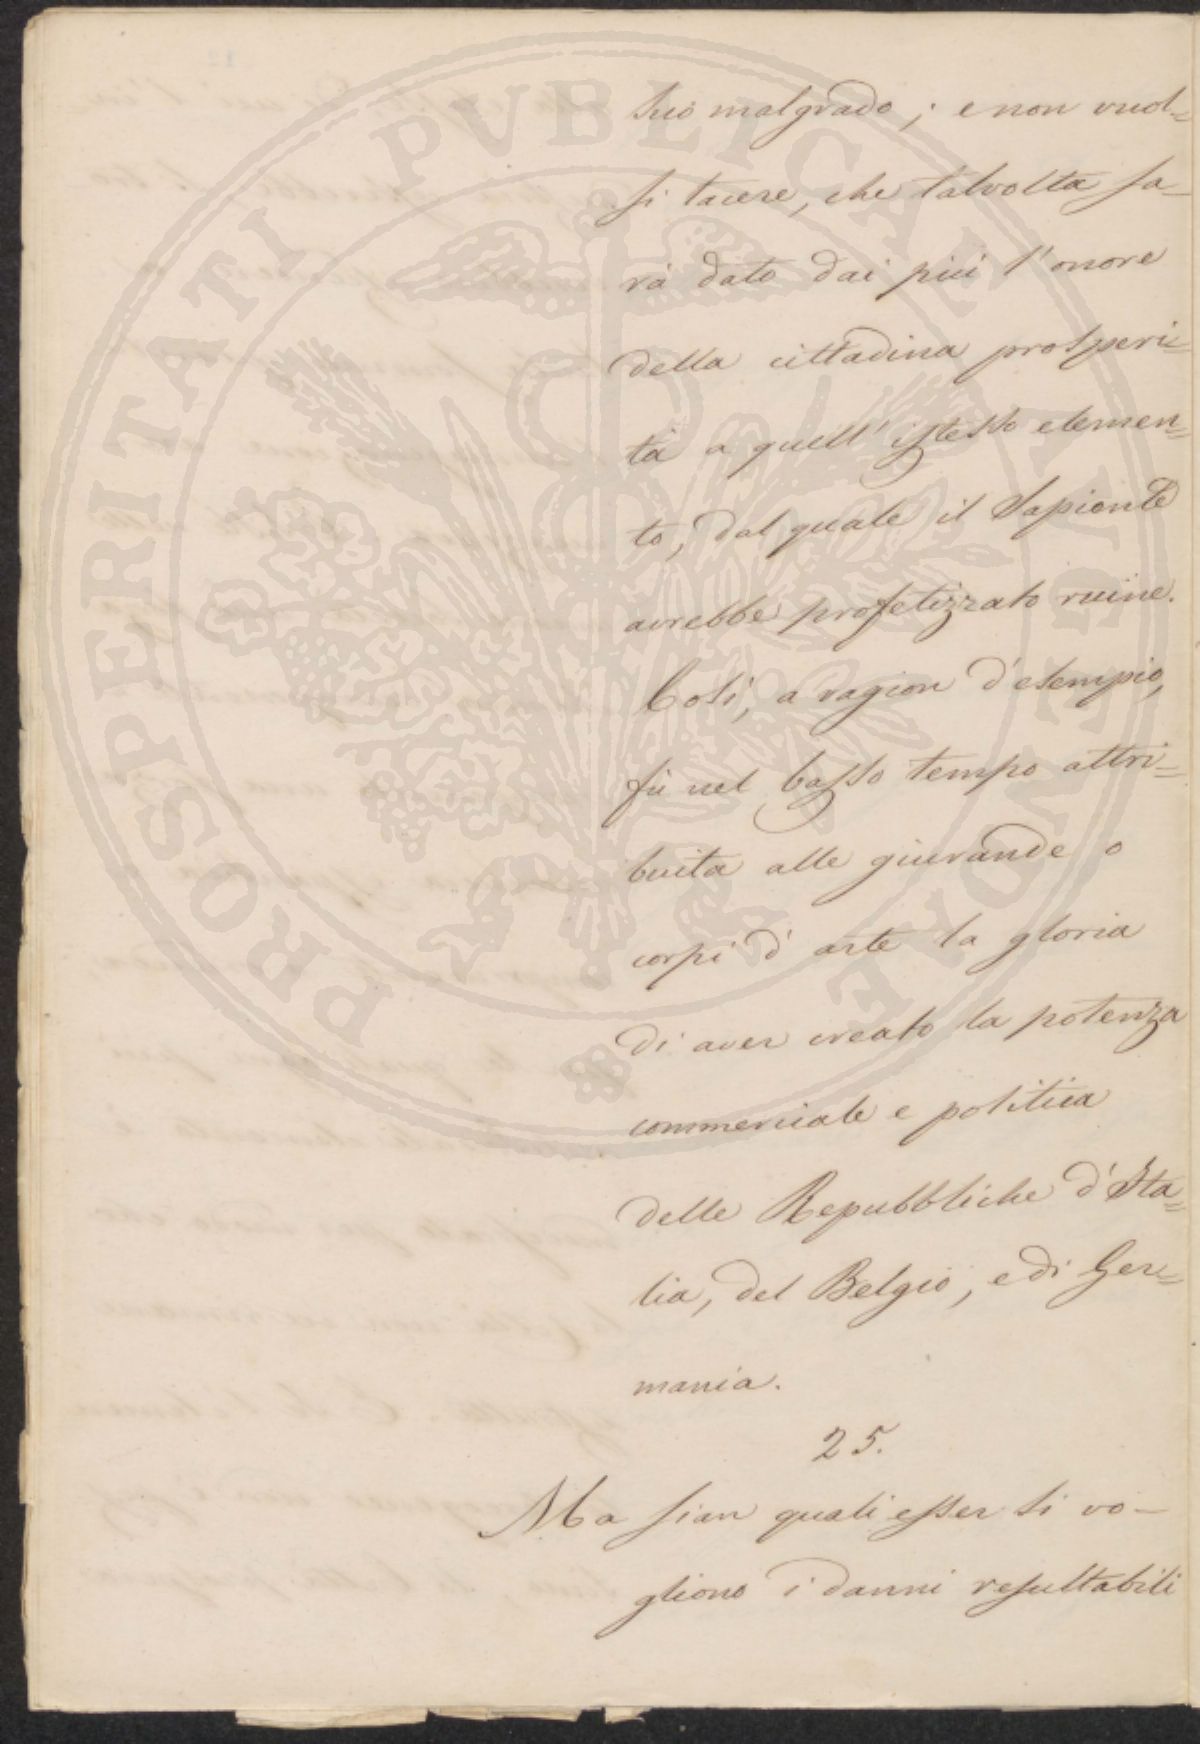 suo malgrado; e non vuol=
si tacere, che talvolta sa=
rà dato dai più l'onore
della cittadina prosperi=
tà a quell'istesso elemen=
to, dal quale il Sapiente
avrebbe profetizzato ruine.
Così, a ragion d'esempio,
fù nel basso tempo attri=
buita alle giurande o
corpi d'arte la gloria
di aver creato la potenza
commerciale e politica
delle Repubbliche d'Ita=
lia, del Belgio, e di Ger=
mania.
25.
Ma sian quali esser si vo-
gliono i danni resultabili
PROSPERITATI PVBLICAE AVGENDAE